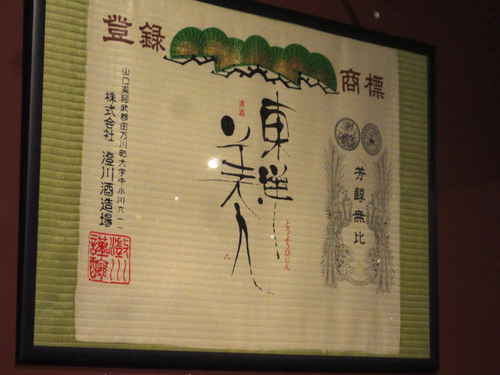 登録 商標
芳醇無比
清酒
東洋美人
とうようびじん
山口縣阿武郡田万川町大字中小川六一一
株式会社 澄川酒造場
澄川謹醸